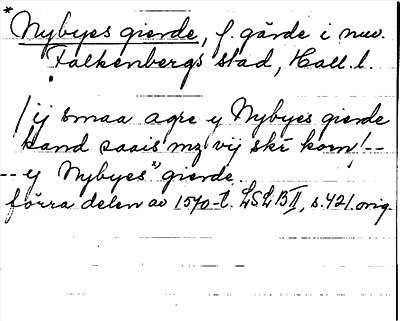 * Nybyes gierde, f. gärde i nuv.
Falkenbergs stad, Hall. l.
/ ij smaa agre y Nybyes gierde
kand saais mz vij skr korn! --
-- y Nybyes" gierde.
förra delen av 1570-t. LSLB II, s. 421. orig.